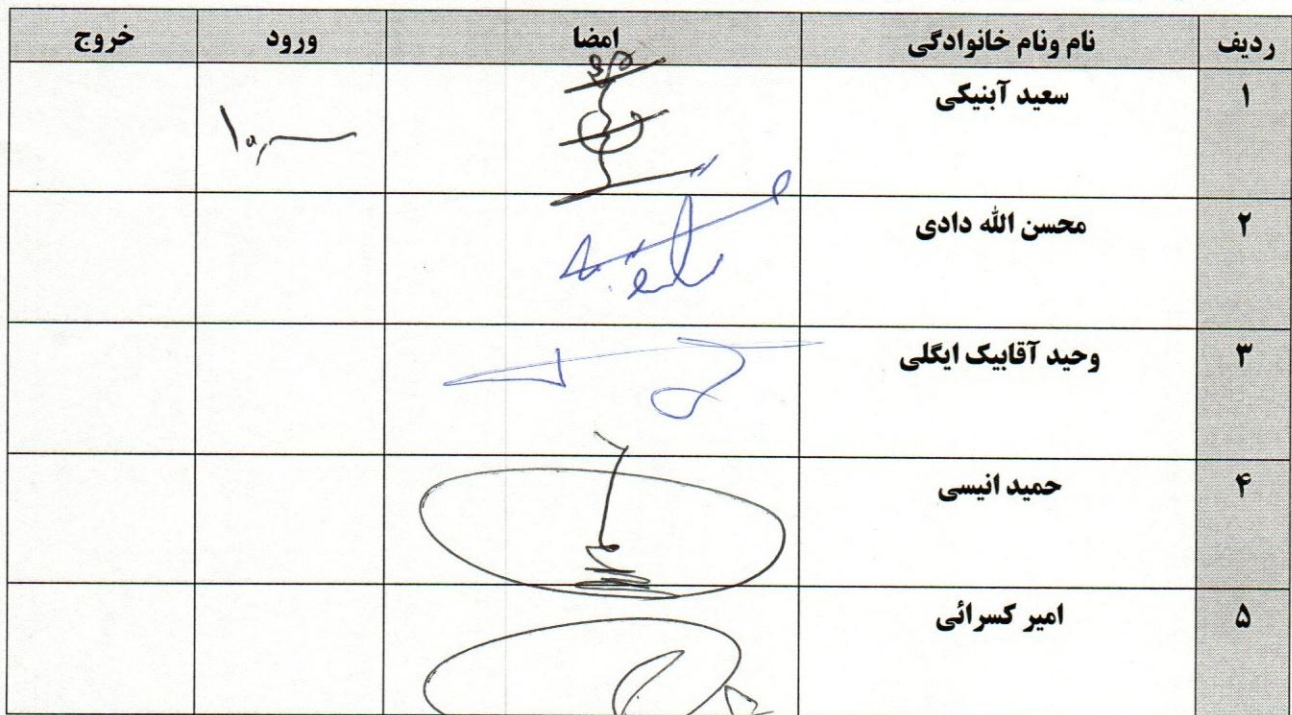 ردیف نام ونام خانوادگی امضا ورود خروج
۱ سعید آبنیکی
۲ محسن الله دادی
۳ وحید آقابیک ایگلی
۴ حمید انیسی
۵ امیر کسرائی